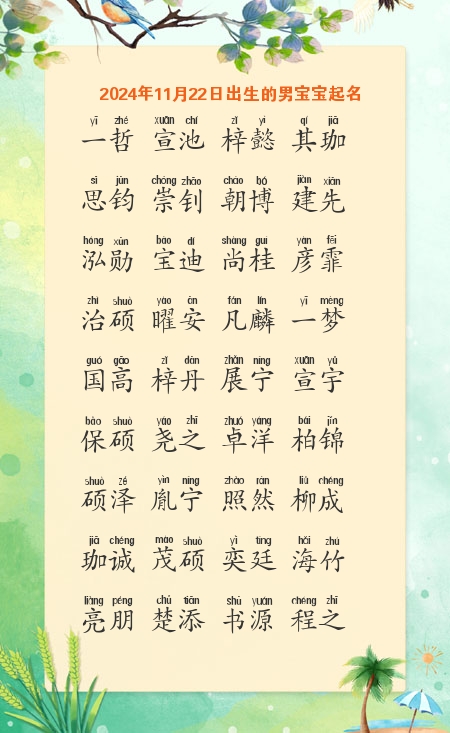 2024年11月22日出生的男宝宝起名
yī zhé xuān chí zǐ yì qí jiā
一哲 宣池 梓懿 其珈
sī jūn chóng zhāo cháo bó jiàn xiān
思钧 崇钊 朝博 建先
hóng xūn bǎo dí shàng guì yàn fēi
泓勋 宝迪 尚桂 彦霏
zhì shuò yào ān fán lín yī mèng
治硕 曜安 凡麟 一梦
guó gāo zǐ dān zhǎn níng xuān yǔ
国高 梓丹 展宁 宣宇
bǎo shuò yáo zhī zhuó yáng bǎi jǐn
保硕 尧之 卓洋 柏锦
shuò zé yìn níng zhào rán liǔ chéng
硕泽 胤宁 照然 柳成
jiā chéng mào shuò yì tíng hǎi zhú
珈诚 茂硕 奕廷 海竹
liàng péng chǔ tiān shū yuán chéng zhī
亮朋 楚添 书源 程之